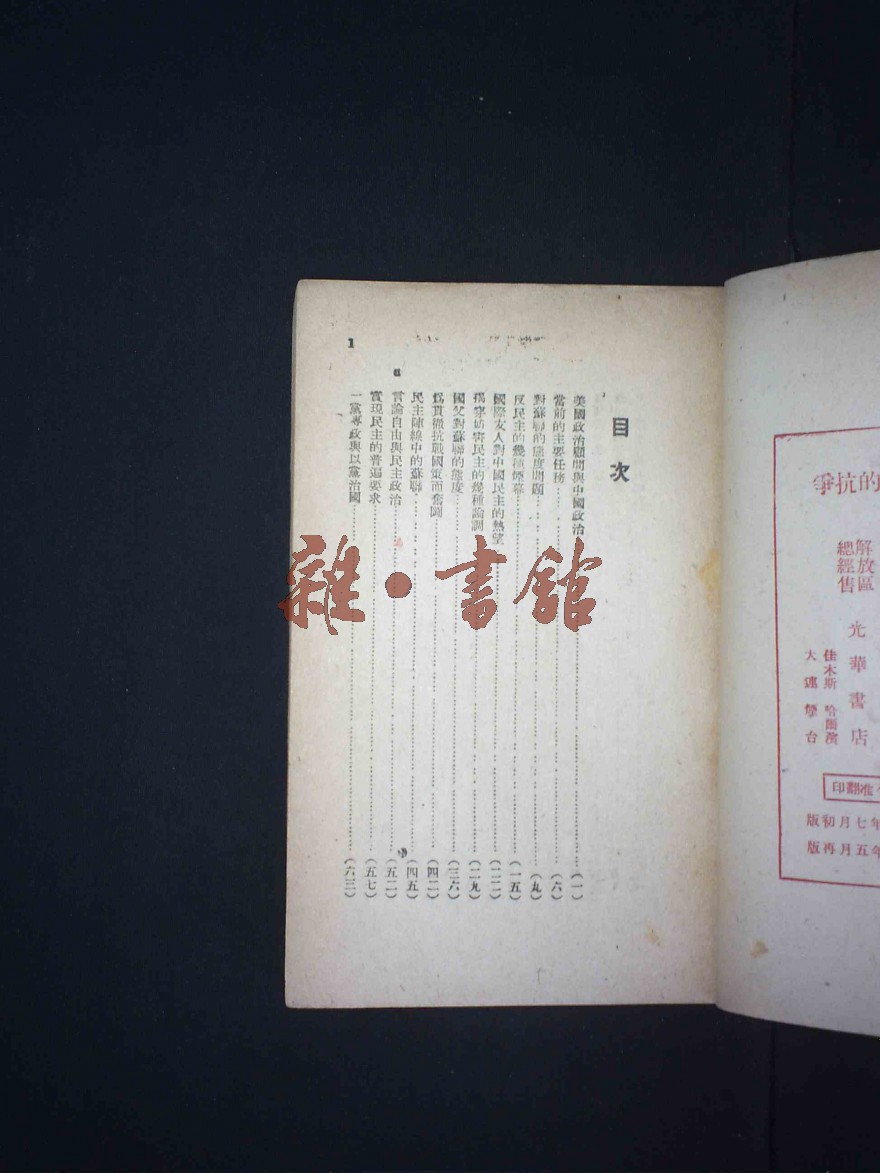 的抗爭
解放區
總經售
光華書店
佳木斯 哈爾濱
大連 煙台
准翻印
年七月初版
年五月再版
目次
美國政治顧問與中國政治(一)
當前的主要任務(六)
對蘇聯的態度問題(九)
反民主的幾種煙幕(一五)
國際友人對中國民主的熱望(二二)
揭穿妨害民主的幾種論調(二九)
國父對蘇聯的態度(三六)
爲貫徹抗戰國策而奮鬥(四二)
民主陣線中的蘇聯(四五)
言論自由與民主政治(五二)
實現民主的普遍要求(五七)
一黨專政與以黨治國(六三)
1
雜·書館